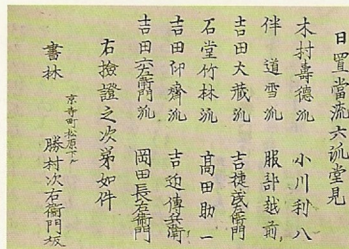 日置當流六派堂見
木村壽徳派 小川利八
伴道雪派 服部越前
吉田大蔵派 吉捷茂衛門
石堂竹林派 高田助一
吉田印齋派 吉迫傳兵衛
吉田六左衛門派 岡田長左衛門
右撿證之次第如件
京寺町松原下ル
書林 勝村次右衛門板